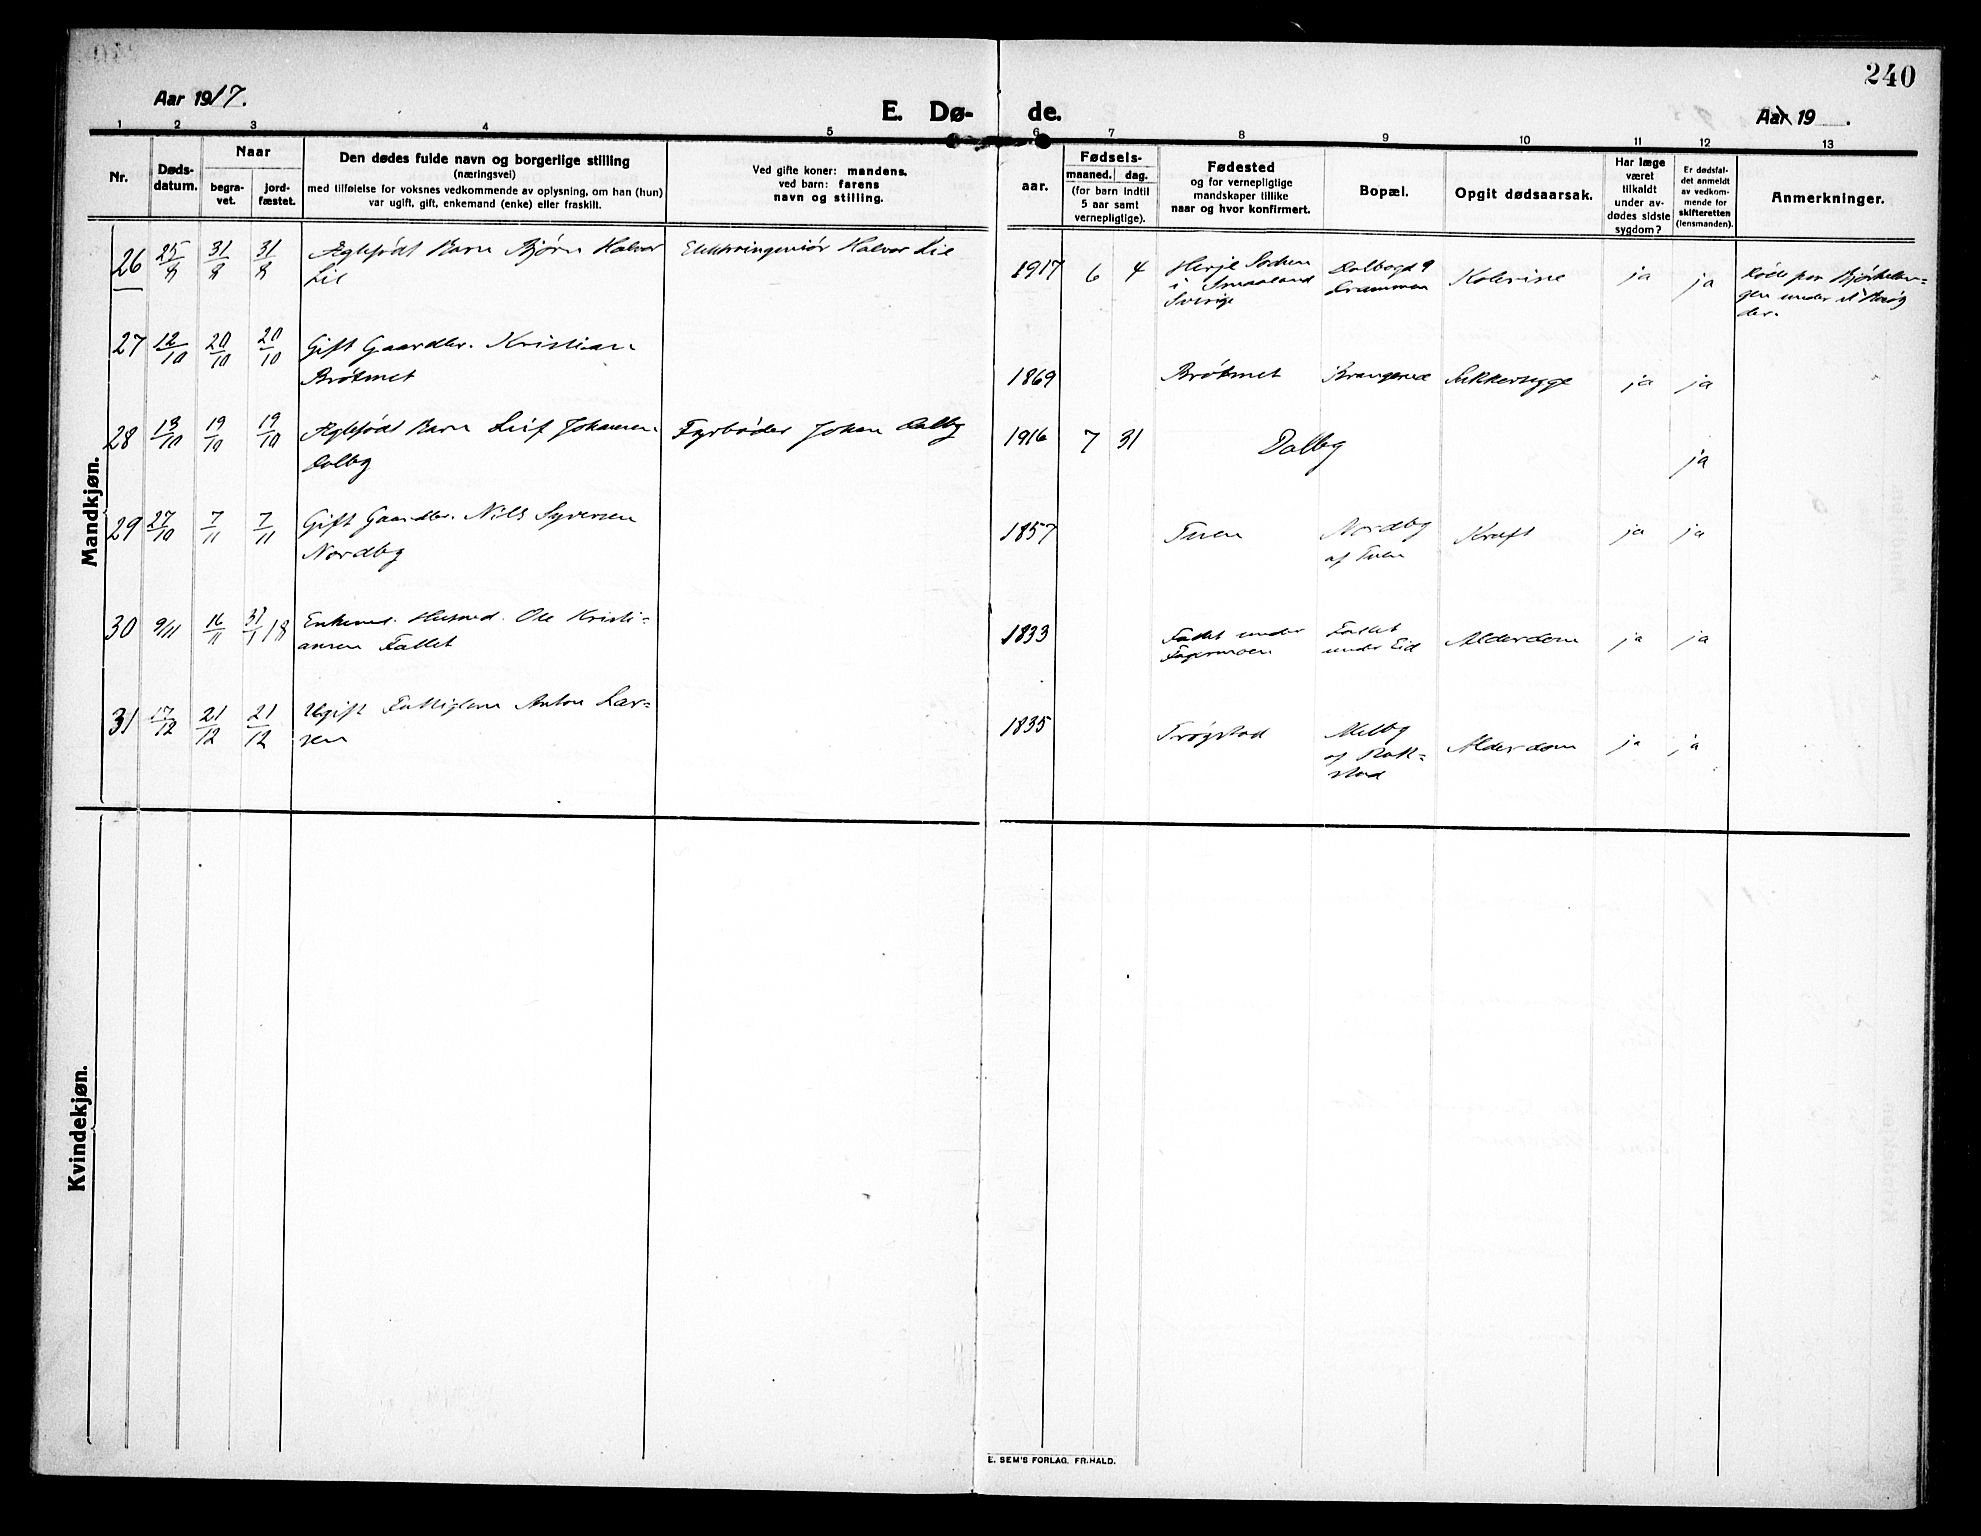 240
Aar 1917.
E. Dø- de.
Aar 19 .
1 2 3 4 5 6 7 8 9 10 11 12 13
Nr.
Døds-
datum.
Naar
begra-
vet.
jord-
fæstet.
Den dødes fulde navn og borgerlige stilling
(næringsvei)
med tilføielse for voksnes vedkommende av oplysning, om han (hun)
var ugift, gift, enkemand (enke) eller fraskilt.
Ved gifte koner: mandens,
ved barn: farens
navn og stilling.
Fødsels-
aar.
maaned.
dag.
(for barn indtil
5 aar samt
vernepligtige).
Fødested
og for vernepligtige
mandskaper tillike
naar og hvor konfirmert.
Bopæl.
Opgit dødsaarsak.
Har læge
været
tilkaldt
under av-
dødes sidste
sygdom?
Er dødsfal-
det anmeldt
av vedkom-
mende for
skifteretten
(lensmanden).
Anmerkninger.
Mandkjøn.
26 25/8 31/8 31/8 Ægtefødt Barn Bjørn Halvor
Lie
Elektroingeniør Halvor Lie
1917 6 4
i Smaaland
Sverige
Drammen
Kolerine ja ja
under
27 12/10 20/10 20/10 Gift Gaardbr. Kristian
Brøtmet
1869 Brøtmet Krangerud Sukkersyge ja ja
28 13/10 19/10 19/10 Ægtefødt Barn Leif Johansen
Dalby
Fyrbøder Johan Dalby
1916 7 31 Dalby ja
29 27/10 7/11 7/11 Gift Gaardbr. Nils Syversen
Nordby
1857 Tuen Nordby
af Tuen
Kræft ja ja
30 9/11 16/11 31/1 18 Enkemd. Husmd. Ole Kristi=
ansen Fallet
1833 Fallet under
Fagermoen
Fallet
under Eid
Alderdom ja ja
31 17/12 21/12 21/12 Ugift Fattiglem Anton Lar=
sen
1835 Trøgstad Melby
af Rak=
stad
Alderdom ja ja
Kvindekjøn.
E. SEM'S FORLAG, FR.HALD.